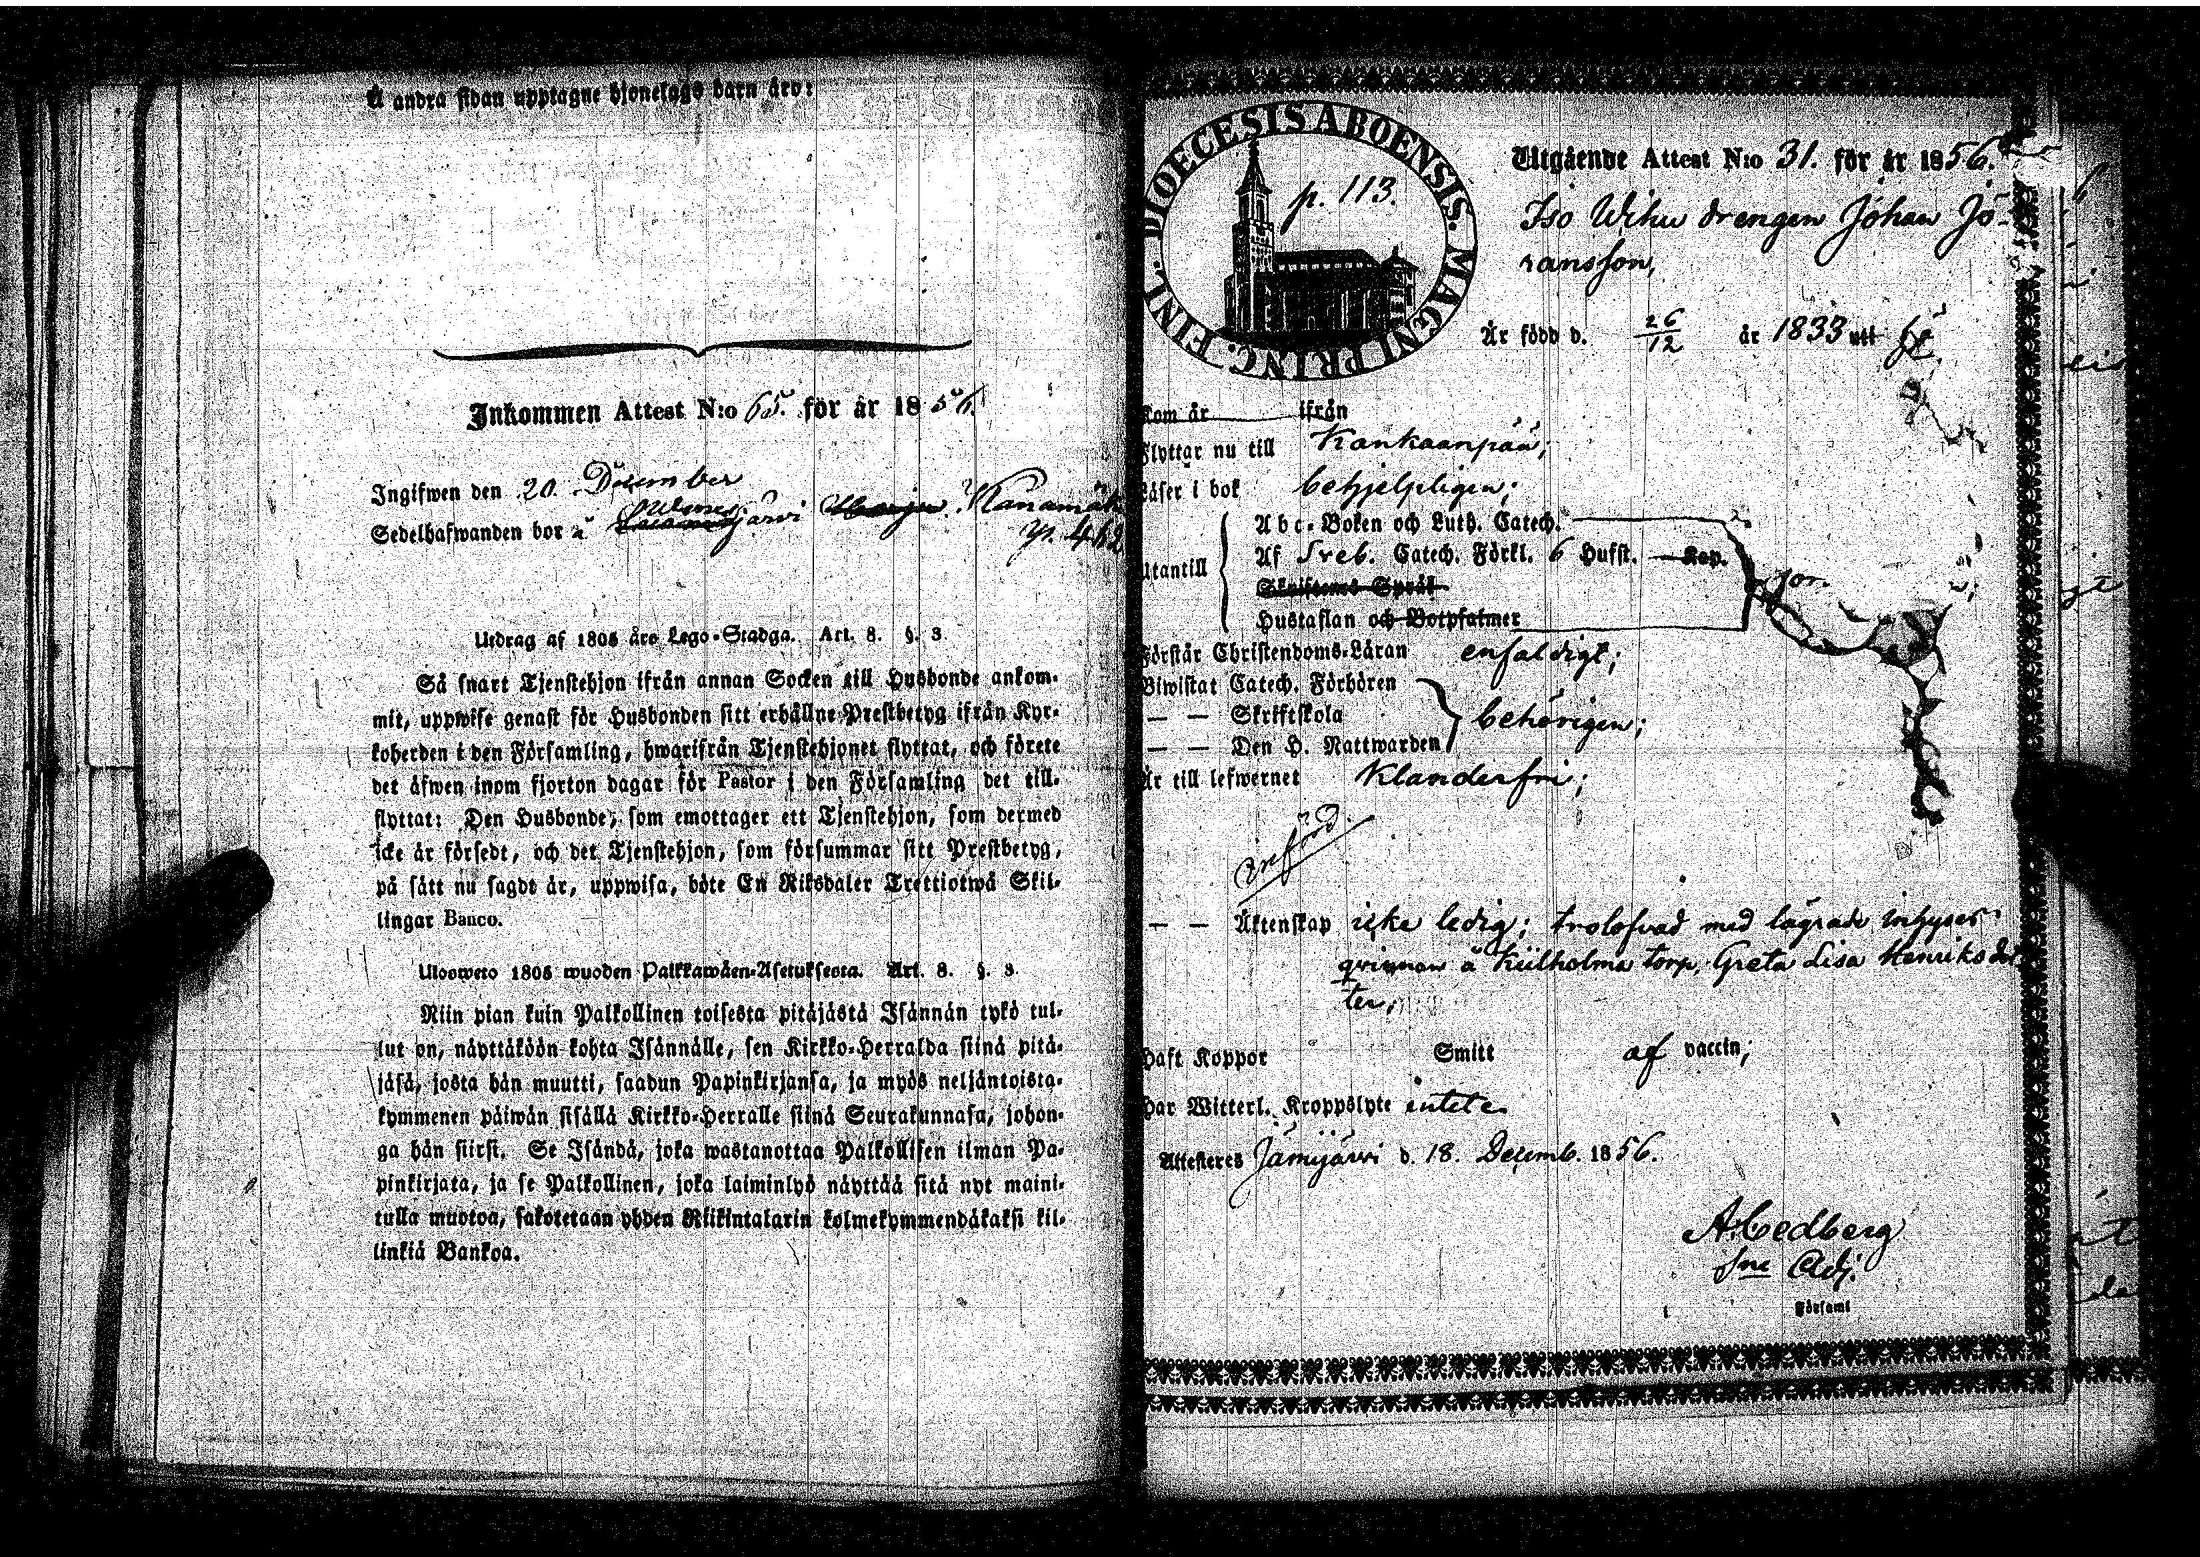 Å andra sidan upptagne hjonelags barn äro:
Inkommen Attest N:o 65. för år 1856.
Ingifwen den 20. December
Sedelhafwanden bor i järvi
p. 462
Utdrag af 1805 års Lego-Stadga. Art. 8. §. 3
Så snart Tjenstehjon ifrån annan Socken till Husbonde ankom-
mit, uppwise genast för Husbonden sitt erhållne Prestbetyg ifrån Kyr-
koherden i den Församling, hwarifrån Tjenstehjonet flyttat, och förete
det äfwen inom fjorton dagar för Pastor i den Församling det till-
flyttat: Den Husbonde, som emottager ett Tjenstehjon, som dermed
icke är försedt, och det Tjenstehjon, som försummar sitt Prestbetyg,
på sätt nu sagdt är, uppwisa, böte En Riksdaler Trettiotwå Skil-
lingar Banco.
Uloswето 1805 wuoden Palkkawäen-Asetuksesta. Art. 8. §. 3
Niin pian kuin Palkollinen toisesta pitäjästä Isännän tykö tul-
lut on, näyttäköön kohta Isännälle, sen Kirkko-Herralda siinä pitä-
jäsä, josta hän muutti, saadun Papinkirjansa, ja myös neljäntoista-
kymmenen päiwän sisällä Kirkko-Herralle siinä Seurakunnasa, johon-
ga hän siirsi. Se Isändä, joka wastanottaa Palkollisen ilman Pa-
pinkirjata, ja se Palkollinen, joka laiminlyö näyttää sitä nyt maini-
tulla muotoa, sakotetaan yhden Riikintalarin kolmekymmendäkaksi kil-
linkiä Bankoa.
DIOECESIS ABOENSIS. MAGNI PRINC. FINL.
p. 113.
Utgående Attest N:o 31. för år 1856.
Iso Wihu drengen Johan Jö-
ransson,
Är född d. 26/12 år 1833 uti
Kom år ifrån
Flyttar nu till Kankaanpää;
Läser i bok behjelpligen;
Utantill
Abc-Boken och Luth. Catech.
Af Sveb. Catech. Förkl. 6 Hufst. Kap.
Skriftenes Språk
Hustaflan och Botpsalmer
Förstår Christendoms-Läran enfaldigt;
Biwistat Catech. Förhören
— — Skriftskola behörigen;
— — Den H. Nattwarden
Är till lefwernet Klanderfri;
Införd.
— — Äktenskap icke ledig; trolofvad med lägrade inhyses-
qvinnan å Kiilholma torp, Greta Lisa Henriksdot
ter;
Haft Koppor Smitt af vaccin;
Har Witterl. Kroppslyte intet
Attesteres Jämijärvi d. 18. Decemb. 1856.
A. Cedberg
Adj.
Församl